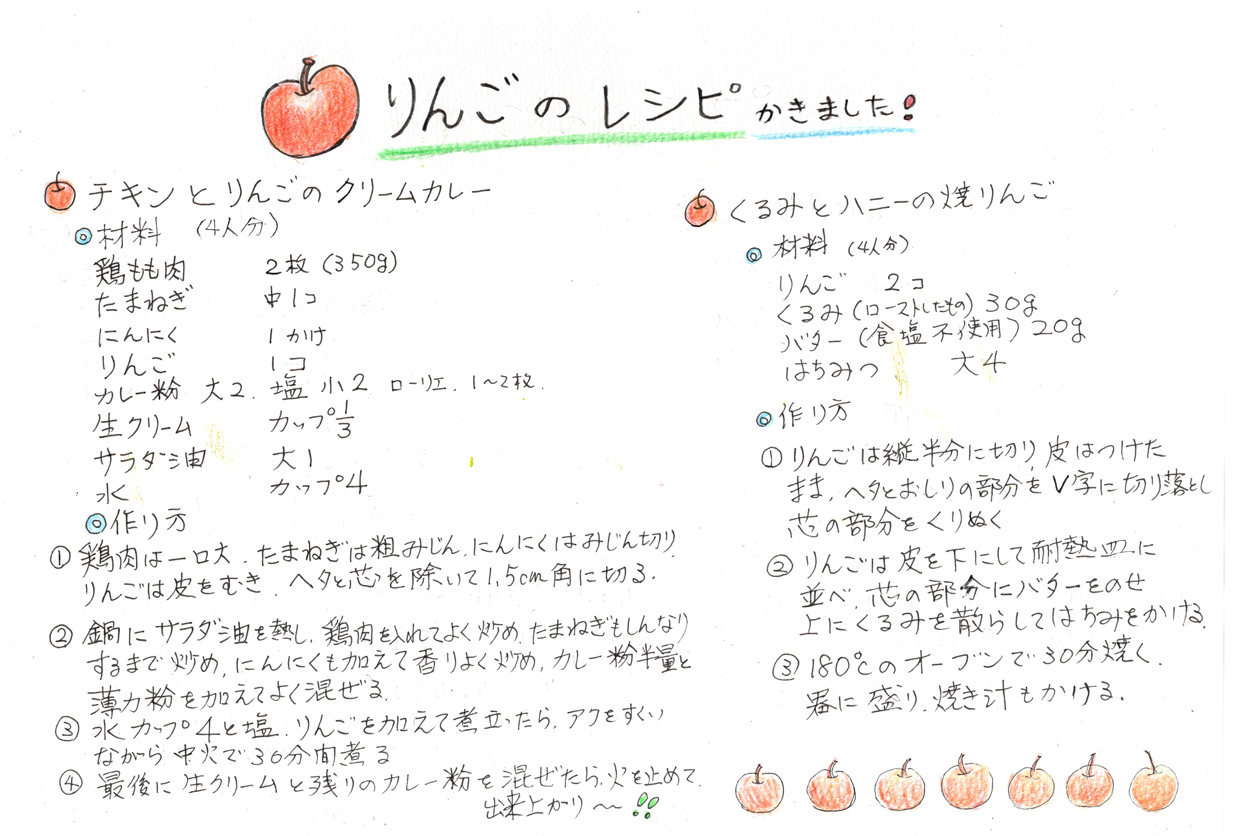 りんごのレシピかきました!
チキンとりんごのクリームカレー
◎材料 (4人分)
鶏もも肉 2枚(350g)
たまねぎ 中1コ
にんにく 1かけ
りんご 1コ
カレー粉 大2. 塩 小2 ローリエ. 1〜2枚.
生クリーム カップ1/3
サラダ油 大1
水 カップ4
◎作り方
①鶏肉は一口大.たまねぎは粗みじん.にんにくはみじん切り
りんごは皮をむき.ヘタと芯を除いて1.5cm角に切る.
②鍋にサラダ油を熱し.鶏肉を入れてよく炒め.たまねぎもしんなり
するまで炒め.にんにくも加えて香りよく炒め.カレー粉半量と
薄力粉を加えてよく混ぜる.
③水カップ4と塩.りんごを加えて煮立ったら.アクをすくい
ながら中火で30分間煮る
④最後に生クリームと残りのカレー粉を混ぜたら.火を止めて
出来上がり〜!!
くるみとハニーの焼りんご
◎材料 (4人分)
りんご 2コ
くるみ(ローストしたもの)30g
バター(食塩不使用)20g
はちみつ 大4
◎作り方
①りんごは縦半分に切り皮はつけた
まま.ヘタとおしりの部分をV字に切り落とし
芯の部分をくりぬく
②りんごは皮を下にして耐熱皿に
並べ.芯の部分にバターをのせ
上にくるみを散らしてはちみをかける.
③180℃のオーブンで30分焼く.
器に盛り.焼き汁もかける.